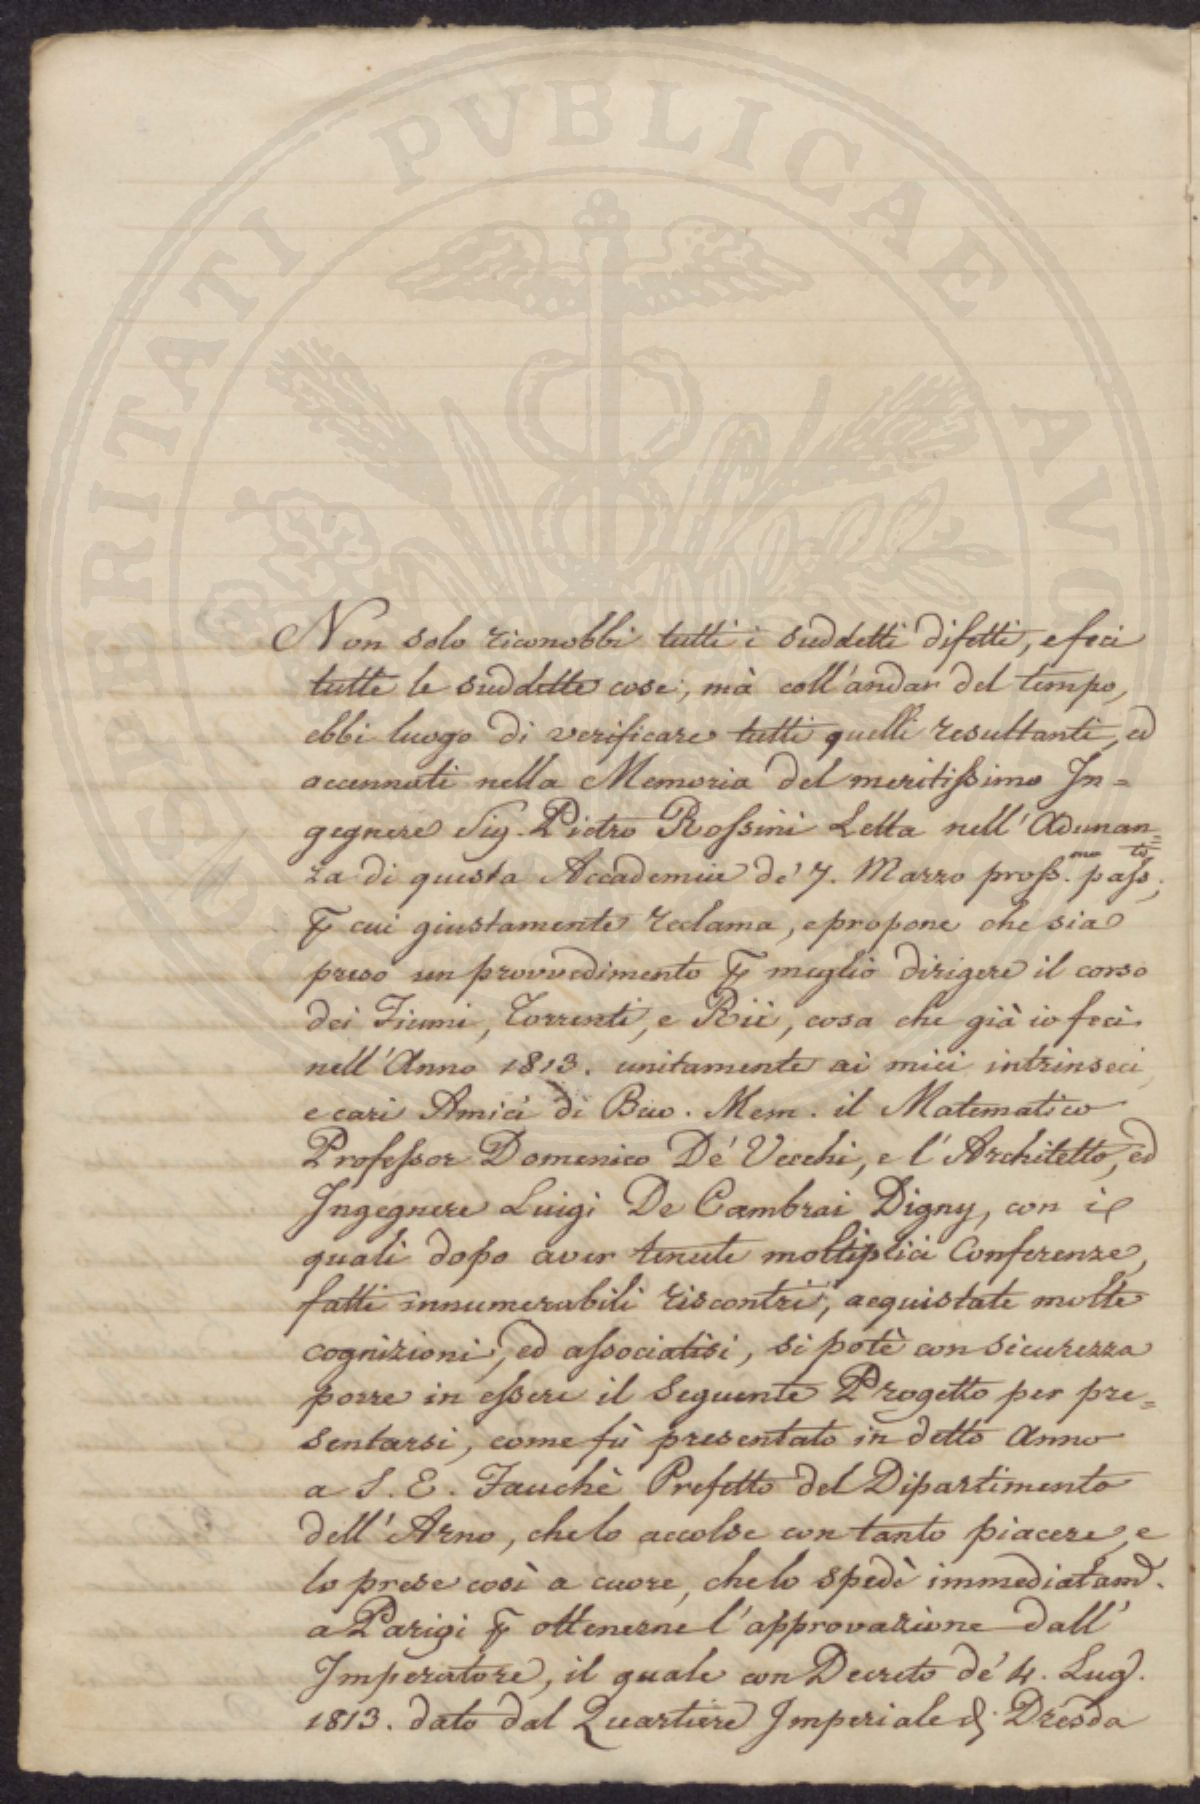 PROSPERITATI PVBLICAE AVG
Non solo riconobbi tutti i suddetti difetti, e feci
tutte le suddette cose; mà coll'andar del tempo,
ebbi luogo di verificare tutti quelli resultanti, ed
accennati nella Memoria del meritissimo In=
gegnere Sig. Pietro Rossini Letta nell'Adunan=
za di questa Accademia de' 7. Marzo pross.mo pass.to;
ꝑ cui giustamente reclama, e propone che sia
preso un provvedimento ꝑ meglio dirigere il corso
dei Fiumi, Torrenti, e Rii, cosa che già io feci
nell'Anno 1813. unitamente ai miei intrinseci,
e cari Amici di Buo. Mem. il Matematico
Professor Domenico De' Vecchi, e l'Architetto, ed
Ingegnere Luigi De Cambrai Digny, con i
quali dopo aver tenute moltiplici Conferenze,
fatti innumerabili riscontri, acquistate molte
cognizioni, ed associatisi, si potè con sicurezza
porre in essere il Seguente Progetto per pre=
sentarsi, come fù presentato in detto Anno
a S. E. Fauchè Prefetto del Dipartimento
dell'Arno, che lo accolse con tanto piacere, e
lo prese così a cuore, che lo spedì immediatam̃.
a Parigi ꝑ ottenerne l'approvazione dall'
Imperatore, il quale con Decreto de' 4. Lug.
1813. dato dal Quartiere Imperiale di Dresda